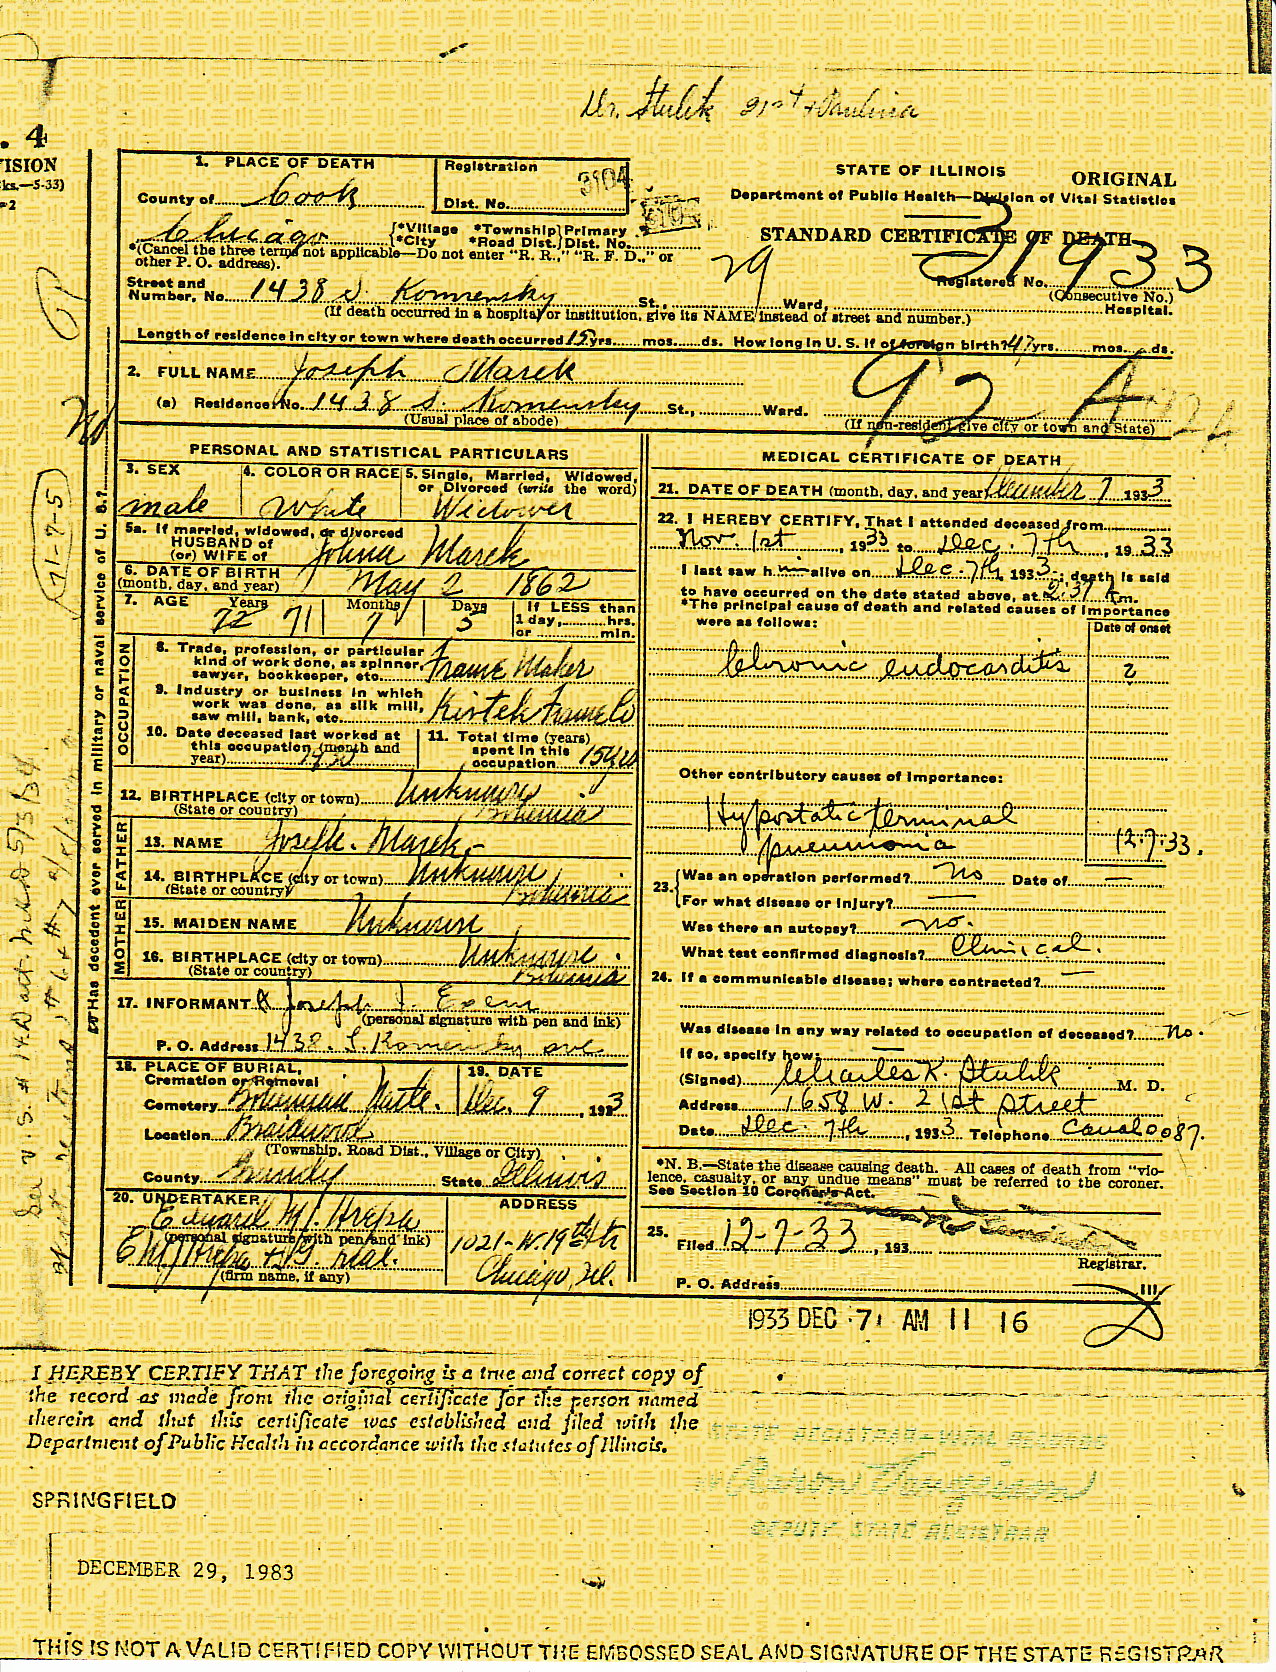 Dr. Stulik 21st & Paulina
. 4
VISION
ks.—5-33)
1. PLACE OF DEATH
County of Cook
Registration
Dist. No. 3104
STATE OF ILLINOIS
ORIGINAL
Department of Public Health—Division of Vital Statistics
Chicago
*Village *Township Primary
*City *Road Dist. Dist. No.
STANDARD CERTIFICATE OF DEATH
*(Cancel the three terms not applicable—Do not enter "R. R.," "R. F. D.," or
other P. O. address).
Registered No. 31933
(Consecutive No.)
Street and
Number, No. 1438 S. Komensky St., 29 Ward, Hospital.
(If death occurred in a hospital or institution, give its NAME instead of street and number.)
Length of residence in city or town where death occurred 15 yrs. mos. ds. How long in U. S. if of foreign birth? 47 yrs. mos. ds.
2. FULL NAME Joseph Marek
92 A
(a) Residence: No. 1438 S. Komensky St., Ward.
(Usual place of abode)
(If non-resident give city or town and State)
No
Has decedent ever served in military or naval service of U. S.?
71-7-5
PERSONAL AND STATISTICAL PARTICULARS
3. SEX
male
4. COLOR OR RACE
White
5. Single, Married, Widowed,
or Divorced (write the word)
Widower
5a. If married, widowed, or divorced
HUSBAND of
(or) WIFE of Marek
6. DATE OF BIRTH
(month, day, and year) May 2 1862
7. AGE Years Months Days If LESS than
72 71 7 5 1 day, hrs.
or min.
OCCUPATION
8. Trade, profession, or particular
kind of work done, as spinner,
sawyer, bookkeeper, etc. Frame Maker
9. Industry or business in which
work was done, as silk mill,
saw mill, bank, etc. Frame Co
10. Date deceased last worked at
this occupation (month and
year) 1930
11. Total time (years)
spent in this
occupation 15 yrs
12. BIRTHPLACE (city or town) Unknown
(State or country) Bohemia
FATHER
13. NAME Joseph Marek
14. BIRTHPLACE (city or town) Unknown
(State or country) Bohemia
MOTHER
15. MAIDEN NAME Unknown
16. BIRTHPLACE (city or town) Unknown
(State or country) Bohemia
17. INFORMANT Joseph
(personal signature with pen and ink)
P. O. Address 1438 S. Komensky ave
18. PLACE OF BURIAL,
Cremation or Removal
Cemetery Bohemian Natl.
19. DATE
Dec. 9, 1933
Location Braidwood
(Township, Road Dist., Village or City)
County Grundy State Illinois
20. UNDERTAKER
Edward M. Hrepa
(personal signature with pen and ink)
(firm name, if any)
ADDRESS
1021-W. 19th St
Chicago, Ill.
MEDICAL CERTIFICATE OF DEATH
21. DATE OF DEATH (month, day, and year) December 7 1933
22. I HEREBY CERTIFY, That I attended deceased from
Nov. 1st, 1933 to Dec. 7th, 1933
I last saw him alive on Dec. 7th, 1933; death is said
to have occurred on the date stated above, at 2:37 A m.
*The principal cause of death and related causes of importance
were as follows:
Date of onset
Chronic endocarditis
Other contributory causes of importance:
Hypostatic terminal
pneumonia 12.7.33.
23. Was an operation performed? No Date of —
For what disease or injury? —
Was there an autopsy? no.
What test confirmed diagnosis? Clinical.
24. If a communicable disease; where contracted? —
Was disease in any way related to occupation of deceased? No.
If so, specify how: —
(Signed) Charles K. Stulik M. D.
Address 1658 W. 21st Street
Date Dec. 7th, 1933 Telephone Canal 0087.
*N. B.—State the disease causing death. All cases of death from "vio-
lence, casualty, or any undue means" must be referred to the coroner.
See Section 10 Coroner's Act.
25.
Filed 12-7-33, 193
Registrar.
P. O. Address
1933 DEC 7 AM 11 16
I HEREBY CERTIFY THAT the foregoing is a true and correct copy of
the record as made from the original certificate for the person named
therein and that this certificate was established and filed with the
Department of Public Health in accordance with the statutes of Illinois.
SPRINGFIELD
DECEMBER 29, 1983
THIS IS NOT A VALID CERTIFIED COPY WITHOUT THE EMBOSSED SEAL AND SIGNATURE OF THE STATE REGISTRAR